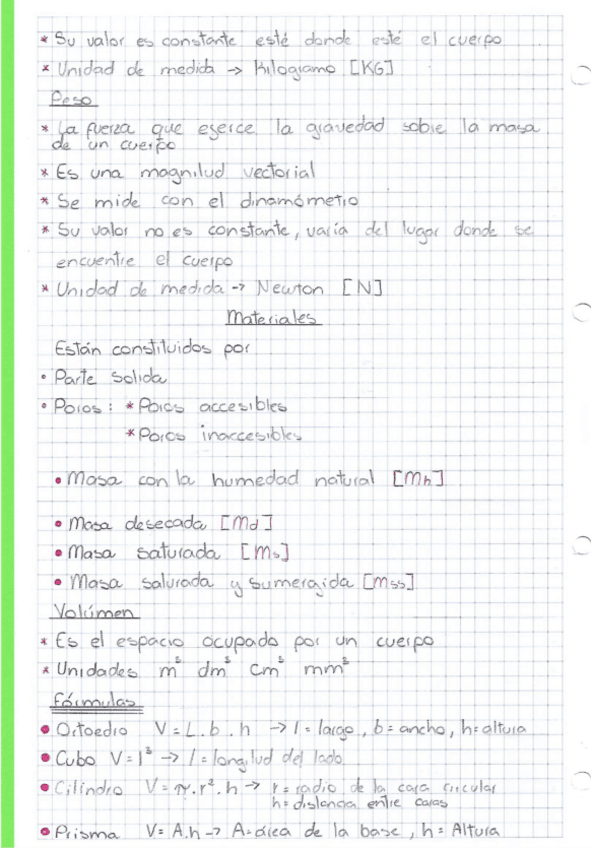 * Su valor es constante esté donde esté el cuerpo
* Unidad de medida → Kilogramo [KG]
Peso
* La fuerza que ejerce la gravedad sobre la masa
de un cuerpo
* Es una magnitud vectorial
* Se mide con el dinamómetro
* Su valor no es constante, varía del lugar donde se
encuentre el cuerpo
* Unidad de medida → Newton [N]
Materiales
Están constituidos por
• Parte solida
• Poros: * Poros accesibles
* Poros inaccesibles
• Masa con la humedad natural [Mh]
• Masa desecada [Md]
• Masa saturada [Ms]
• Masa saturada y sumergida [Mss]
Volúmen
* Es el espacio ocupado por un cuerpo
* Unidades m³ dm³ cm³ mm³
Fórmulas
• Ortoedro V = L . b . h → l = largo, b = ancho, h = altura
• Cubo V = l³ → l = longitud del lado
• Cilindro V = π . r² . h → r = radio de la cara circular
h = distancia entre caras
• Prisma V = A . h → A = área de la base, h = Altura